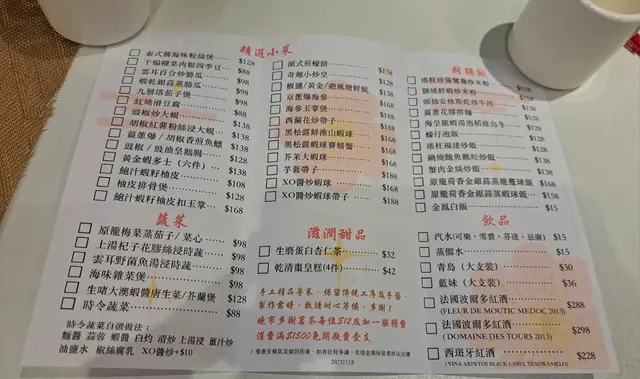 精選小菜
泰式醬海味粉絲煲 $128
干煸欖菜肉鬆四季豆 $88
雲耳百合炒勝瓜 $88
蝦乾銀蒜蒸勝瓜 $98
九層塔茄子煲 $98
紅燒滑豆腐 $88
豉椒炒大蜆
胡椒紅薯粉絲浸大蜆 $138
薑蔥爆 / 胡椒香煎魚鰾 $138
豉椒 / 豉油皇鵝腸 $128
黃金蝦多士 (六件) $138
鮑汁蝦籽柚皮 $108
柚皮排骨煲 $128
鮑汁蝦籽柚皮扣玉掌 $168
潮式煎蠔餅
奇趣小炒皇 $138
椒鹽/黃金/避風塘鮮魷 $138
京蔥爆海參
海參玉掌煲
西蘭花炒帶子 $188
黑松露鮮淮山蝦球 $168
黑松露蝦球賽螃蟹 $168
芥菜大蝦球 $168
芋蓉帶子 $188
XO醬炒蝦球 $168
XO醬炒帶子蝦球 $188
瑤柱珍菌鴛鴦炒米粉 $138
頭抽安格斯乾炒牛河 $158
薑蔥花膠撈麵
海皇龍蝦湯泡稻庭烏冬
蠔仔泡飯 $128
瑤柱福建炒飯 $138
鍋燒鮑魚雞粒炒飯 $138
蟹肉金絲炒飯 $138
原龍荷香金銀蒜蒸龍躉球飯 $168
原龍荷香金銀蒜蒸蝦球飯 $158
金鳳白飯 $15
蔬菜
原龍梅菜蒸茄子/菜心 $98
上湯杞子花膠絲浸時蔬 $98
雲耳野菌魚湯浸時蔬 $98
海味雜菜煲 $98
生啫大澳蝦醬唐生菜/芥蘭煲 $128
時令蔬菜 $88
時令蔬菜自選做法:
麵醬 蒜蓉 蝦醬 白灼 清炒 上湯浸 薑汁炒
油鹽水 椒絲腐乳 XO醬炒+$10
滋潤甜品
生磨蛋白杏仁茶 $32
乾清棗皇糕(4件) $42
手工精品粵菜,保留傳統工序及手藝,
製作需時,敬請耐心等候。多謝!
晚市多謝茗茶每位$12及加一服務費
消費滿$1500免開瓶費壹支
20231118
飲品
汽水(可樂,雪碧,芬達,忌廉) $15
蒸餾水 $15
青島 (大支裝) $30
藍妹 (大支裝) $36
法國波爾多紅酒 $288
(FLEUR DE MOUTIC MEDOC 2013)
法國波爾多紅酒 $298
(DOMAINE DES TOURS 2015)
西班牙紅酒 $228
(VINA ARPETOS BLACK LABEL TEMPRANILLO)